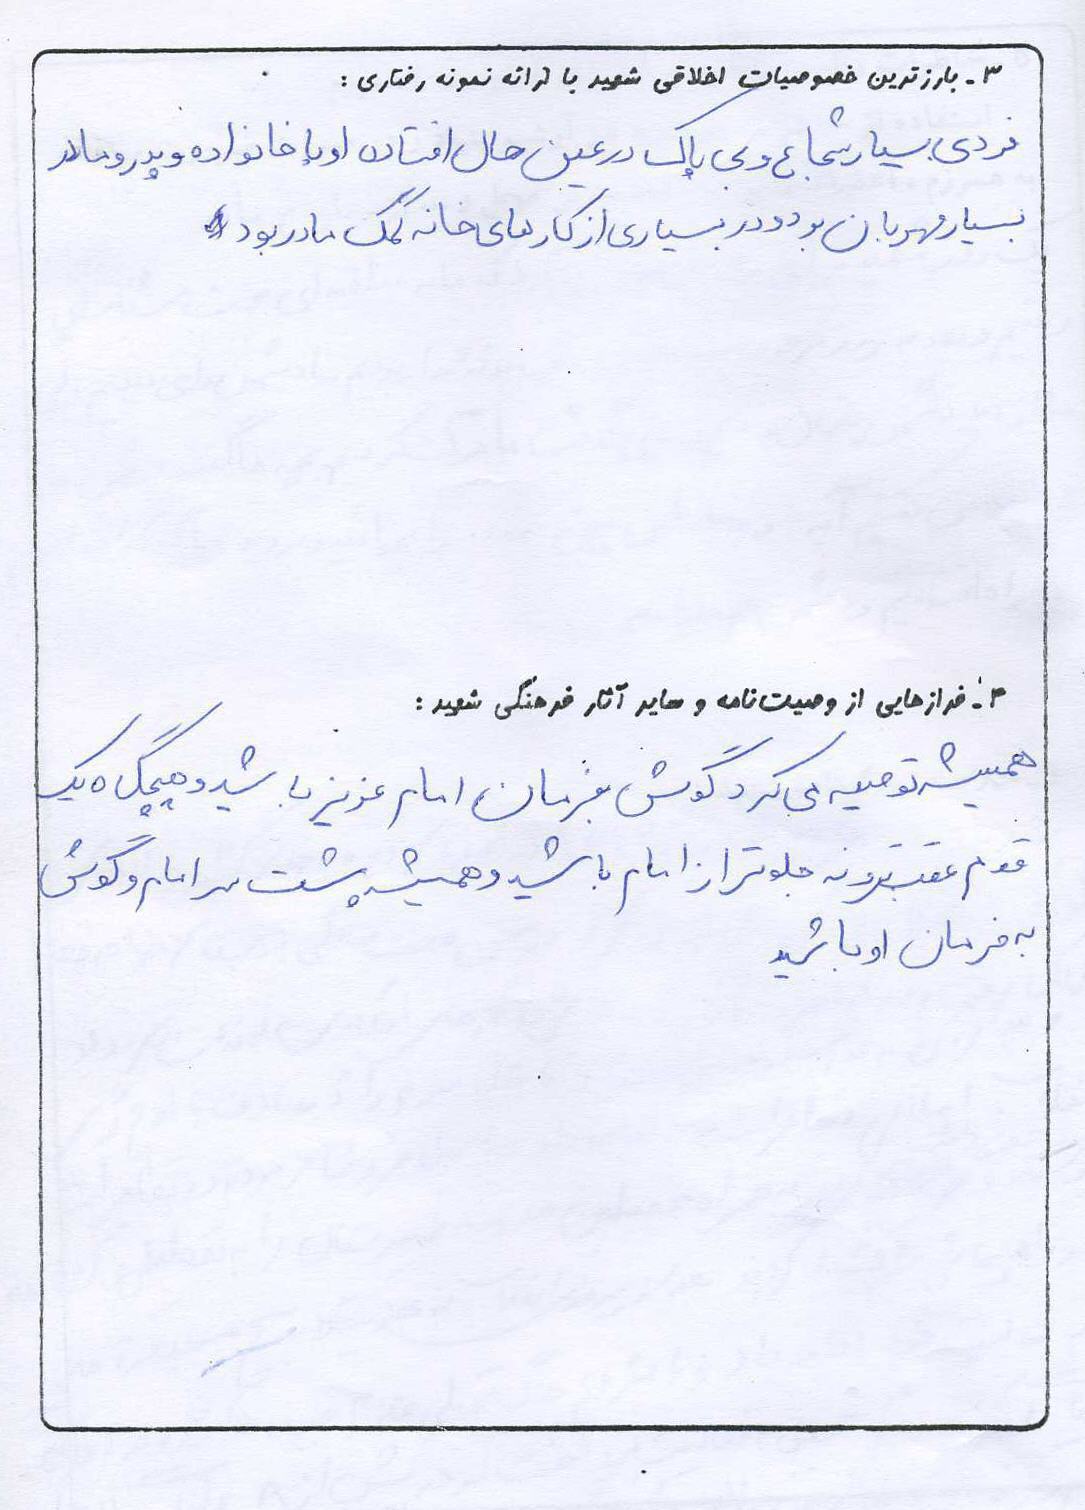 ۳ـ بارزترین خصوصیات اخلاقی شهید با ارائه نمونه رفتاری :
فردی بسیار شجاع و بی باک در عین حال افتاده او با خانواده و پدر و مادر
بسیار مهربان بود و در بسیاری از کارهای خانه کمک مادر بود
۴ـ فرازهایی از وصیت‌نامه و سایر آثار فرهنگی شهید :
همیشه توصیه می کرد گوش بفرمان امام عزیز باشید و هیچگاه یک
قدم عقبتر و نه جلوتر از امام باشید و همیشه پشت سر امام و گوش
به فرمان او باشید